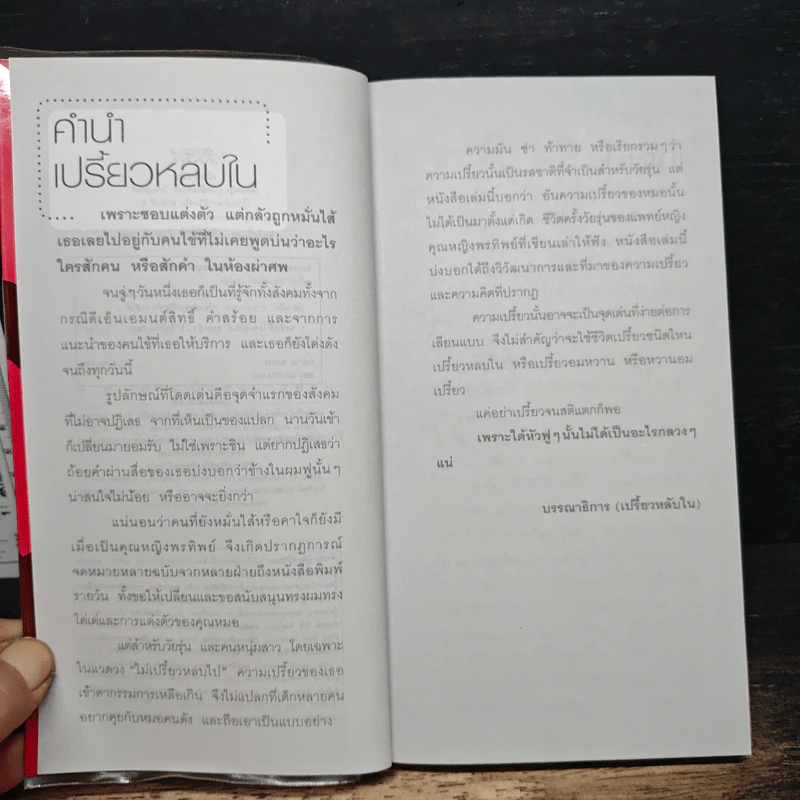 คำนำ
เปรี้ยวหลบใน
เพราะชอบแต่งตัว แต่กลัวถูกหมั่นไส้
เธอเลยไปอยู่กับคนไข้ที่ไม่เคยพูดบ่นว่าอะไร
ใครสักคน หรือสักคำ ในห้องผ่าศพ
จนจู่ๆวันหนึ่งเธอก็เป็นที่รู้จักทั้งสังคมทั้งจาก
กรณีดีเอ็นเอมนต์สิทธิ์ คำสร้อย และจากการ
แนะนำของคนไข้ที่เธอให้บริการ และเธอก็ยังโด่งดัง
จนถึงทุกวันนี้
รูปลักษณ์ที่โดดเด่นคือจุดจำแรกของสังคม
ที่ไม่อาจปฏิเสธ จากที่เห็นเป็นของแปลก นานวันเข้า
ก็เปลี่ยนมายอมรับ ไม่ใช่เพราะชิน แต่ยากปฏิเสธว่า
ถ้อยคำผ่านสื่อของเธอบ่งบอกว่าข้างในผมฟูนั้นๆ
น่าสนใจไม่น้อย หรืออาจจะยิ่งกว่า
แน่นอนว่าคนที่ยังหมั่นไส้หรือคาใจก็ยังมี
เมื่อเป็นคุณหญิงพรทิพย์ จึงเกิดปรากฏการณ์
จดหมายหลายฉบับจากหลายฝ่ายถึงหนังสือพิมพ์
รายวัน ทั้งขอให้เปลี่ยนและขอสนับสนุนทรงผมทรง
โด่เด่และการแต่งตัวของคุณหมอ
แต่สำหรับวัยรุ่น และคนหนุ่มสาว โดยเฉพาะ
ในแวดวง "ไม่เปรี้ยวหลบไป" ความเปรี้ยวของเธอ
เข้าตากรรมการเหลือเกิน จึงไม่แปลกที่เด็กหลายคน
อยากคุยกับหมอคนดัง และถือเอาเป็นแบบอย่าง
ความมัน ซ่า ท้าทาย หรือเรียกรวมๆว่า
ความเปรี้ยวนั้นเป็นรสชาติที่จำเป็นสำหรับวัยรุ่น แต่
หนังสือเล่มนี้บอกว่า อันความเปรี้ยวของหมอนั้น
ไม่ได้เป็นมาตั้งแต่เกิด ชีวิตครั้งวัยรุ่นของแพทย์หญิง
คุณหญิงพรทิพย์ที่เขียนเล่าให้ฟัง หนังสือเล่มนี้
บ่งบอกได้ถึงวิวัฒนาการและที่มาของความเปรี้ยว
และความคิดที่ปรากฏ
ความเปรี้ยวนั้นอาจจะเป็นจุดเด่นที่ง่ายต่อการ
เลียนแบบ จึงไม่สำคัญว่าจะใช้ชีวิตเปรี้ยวชนิดไหน
เปรี้ยวหลบใน หรือเปรี้ยวอมหวาน หรือหวานอม
เปรี้ยว
แค่อย่าเปรี้ยวจนสติแตกก็พอ
เพราะใต้หัวฟูๆนั้นไม่ได้เป็นอะไรกลวงๆ
แน่
บรรณาธิการ (เปรี้ยวหลับใน)